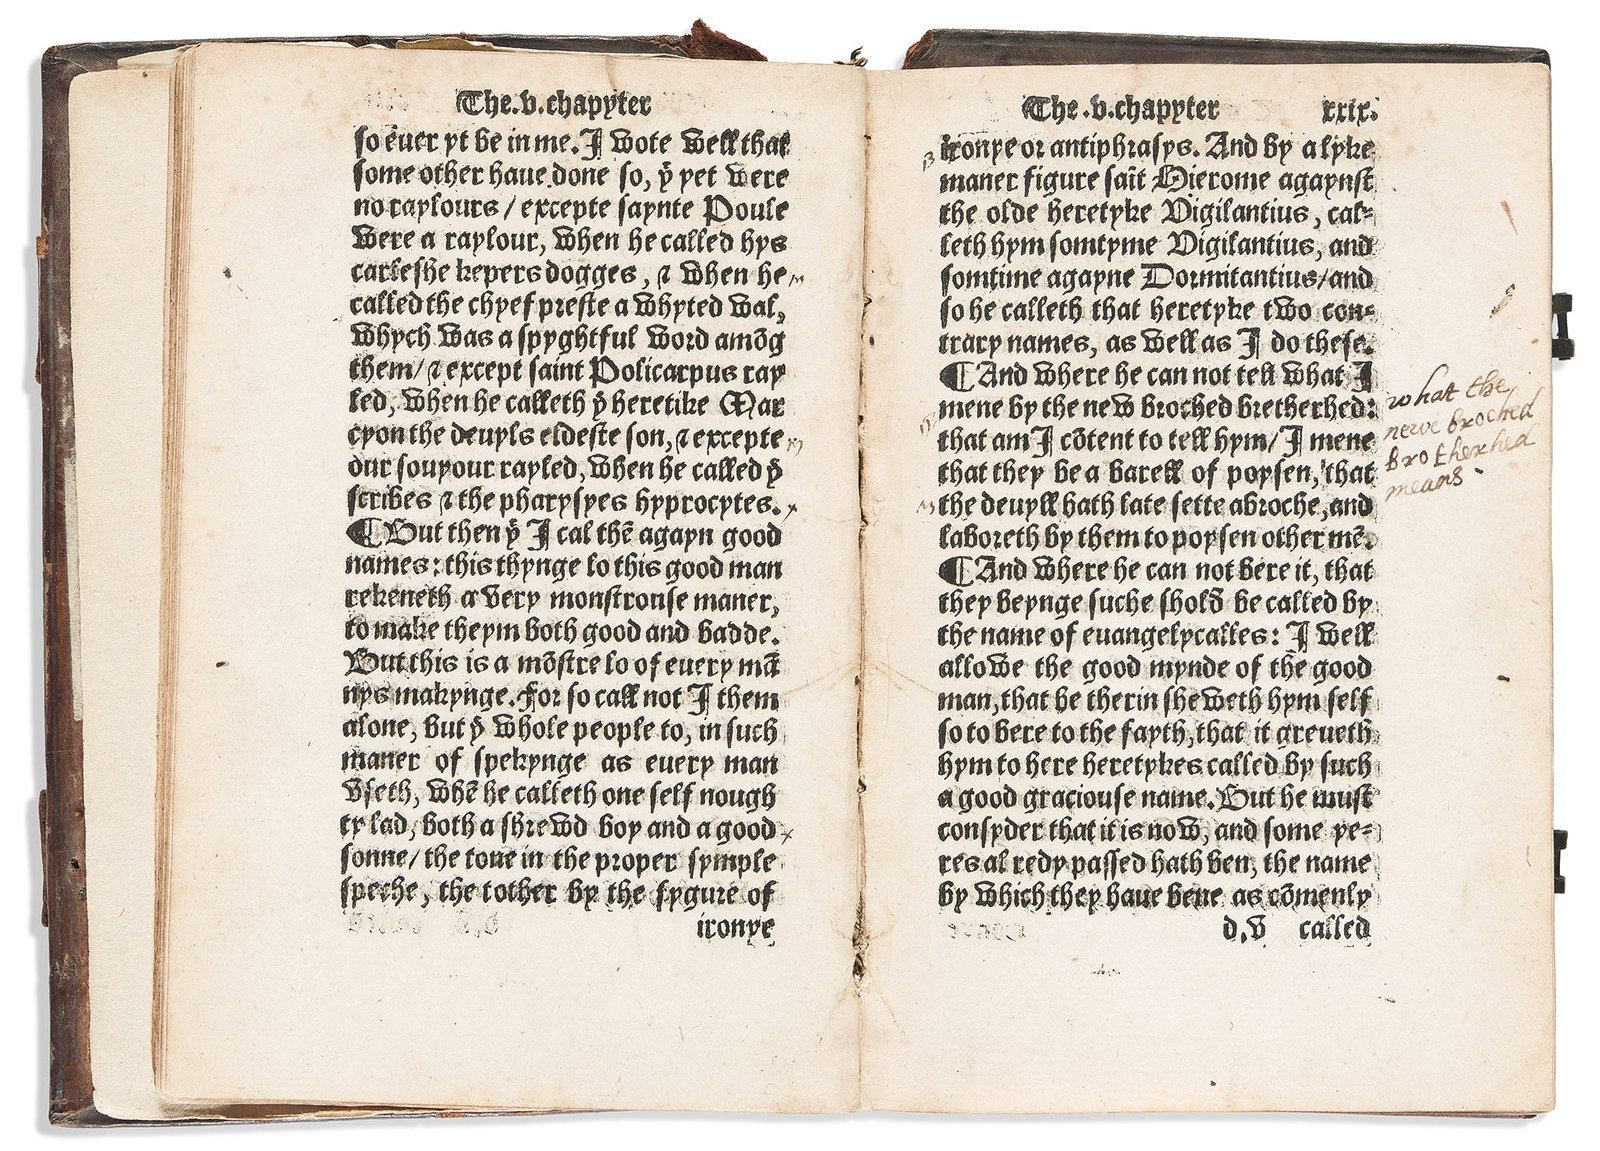 The .v. chapyter
so euer yt be in me. I wote well that
some other haue done so, ẏ yet were
no raylours / excepte saynte Poule
were a raylour, when he called hys
carleshe kepers dogges, ⁊ when he
called the chyef preste a whyted wal,
whych was a spyghtful word amōg
them / ⁊ except saint Policarpus ray
led, when he calleth ẏ heretike Mar
cyon the deuyls eldeste son, ⁊ excepte
our souyour rayled, when he called ẏ
scribes ⁊ the pharysyes hyprocytes.
¶ But then ẏ I cal thē agayn good
names: this thynge lo this good man
rekeneth a very monstrouse maner,
to make theym both good and badde.
But this is a mōstre lo of euery mā
nys makynge. For so call not I them
alone, but ẏ whole people to, in such
maner of spekynge as euery man
vseth, whē he calleth one self nough
ty lad, both a shrewd boy and a good
sonne / the tone in the proper symple
speche, the tother by the fygure of
ironye
The .v. chapyter xxix.
ironye or antiphrasys. And by a lyke
maner figure saīt Hierome agaynst
the olde heretyke Vigilantius, cal-
leth hym somtyme Vigilantius, and
somtime agayne Dormitantius / and
so he calleth that heretyke two con-
trary names, as well as I do these.
¶ And where he can not tell what I
mene by the new broched bretherhed:
that am I cōtent to tell hym / I mene
that they be a barell of poysen, that
the deuyll hath late sette abroche, and
laboreth by them to poysen other mē.
¶ And where he can not bere it, that
they beynge suche shold be called by
the name of euangelycalles: I well
allowe the good mynde of the good
man, that he therin sheweth hym self
so to bere to the fayth, that it greueth
hym to here heretykes called by such
a good graciouse name. But he must
consyder that it is now, and some ye-
res al redy passed hath ben, the name
by which they haue bene as cōmenly
d.v called
what the
new broched
brotherhed
means